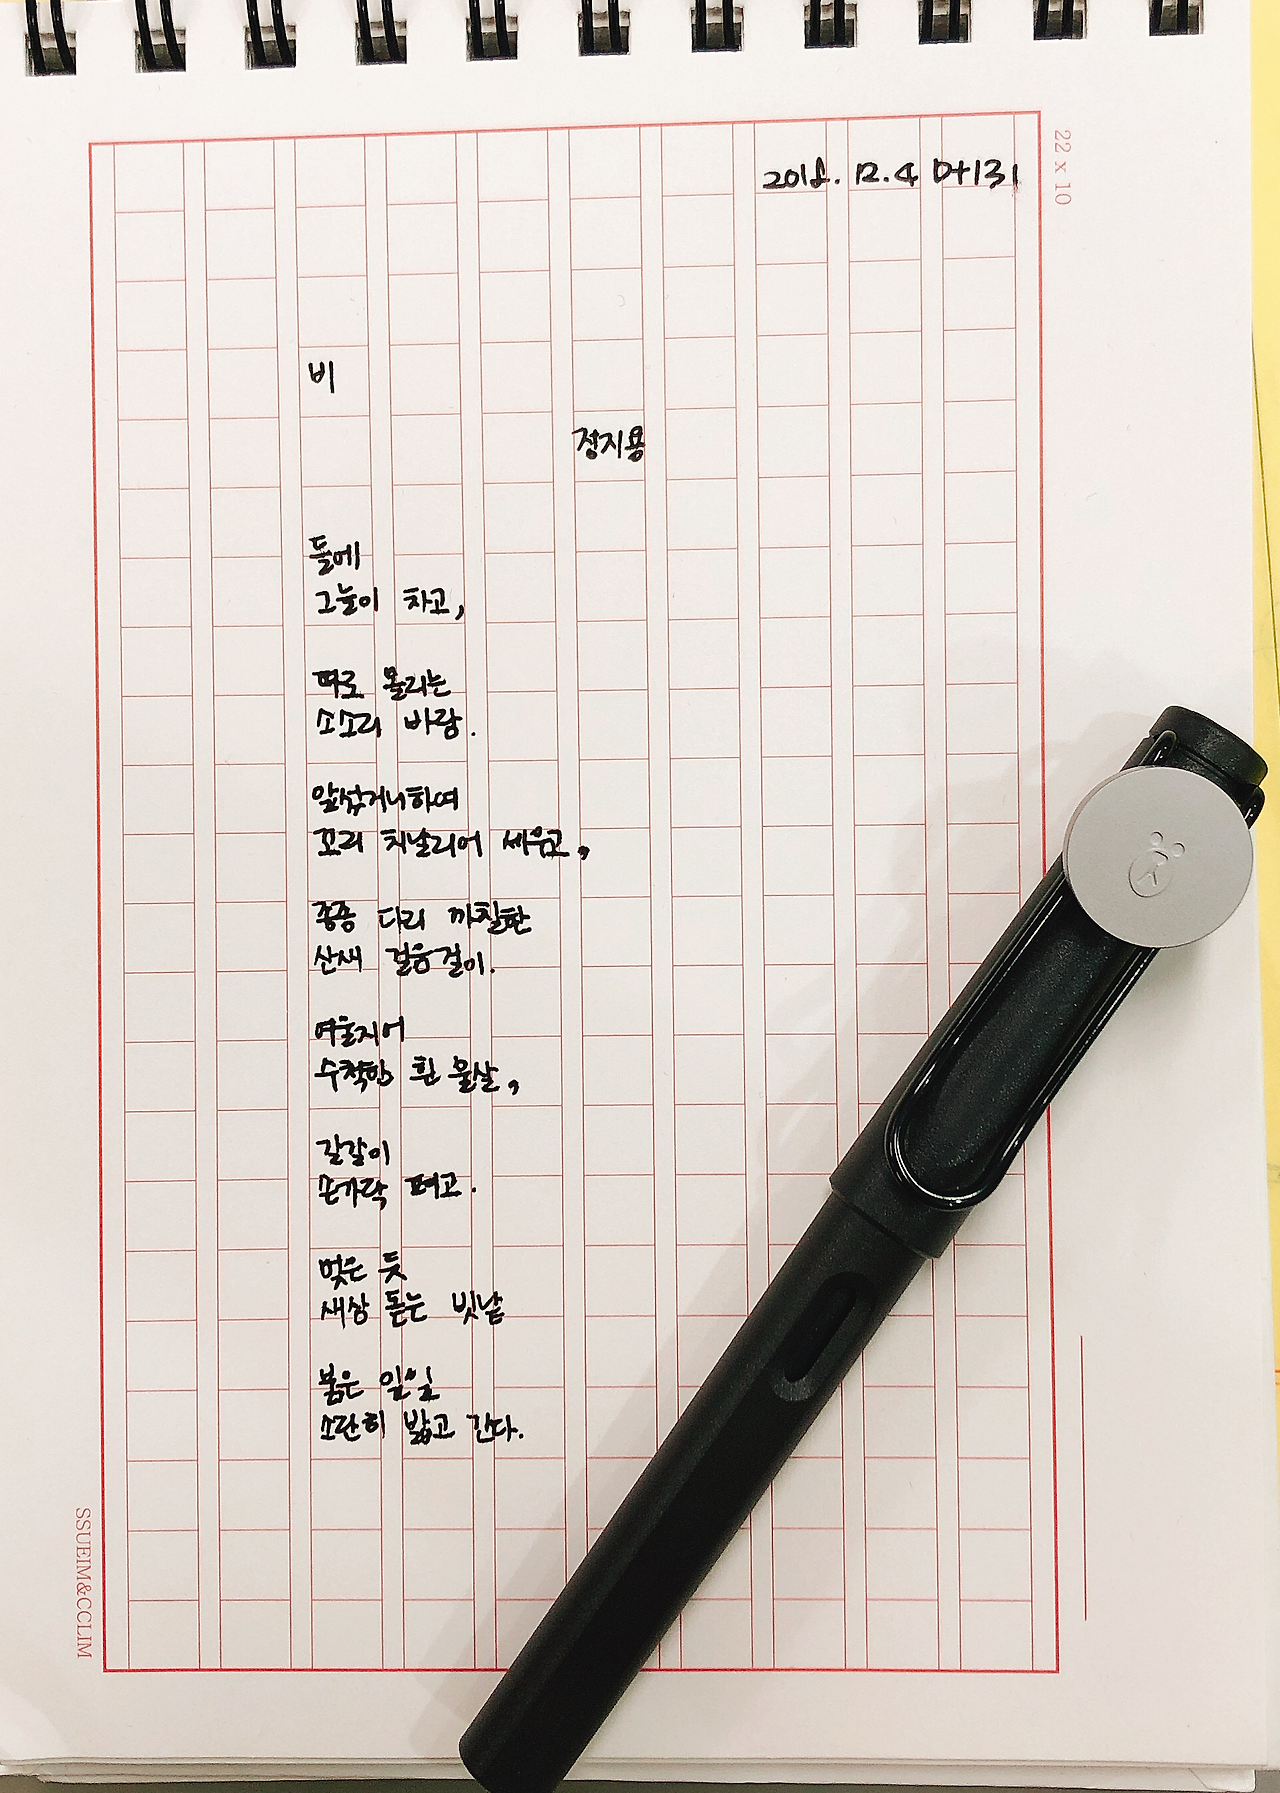 2018. 12. 4 D+131
22 x 10
비
정지용
들에
그늘이 차고,
따로 몰리는
소소리 바람.
앞섰거니하여
꼬리 치날리어 세우고,
종종 다리 까칠한
산새 걸음걸이.
여울지어
수척한 흰 물살,
갈갈이
손가락 펴고.
멎은 듯
새삼 돋는 빗낱
붉은 잎잎
소란히 밟고 간다.
SSUEIM&CCLIM